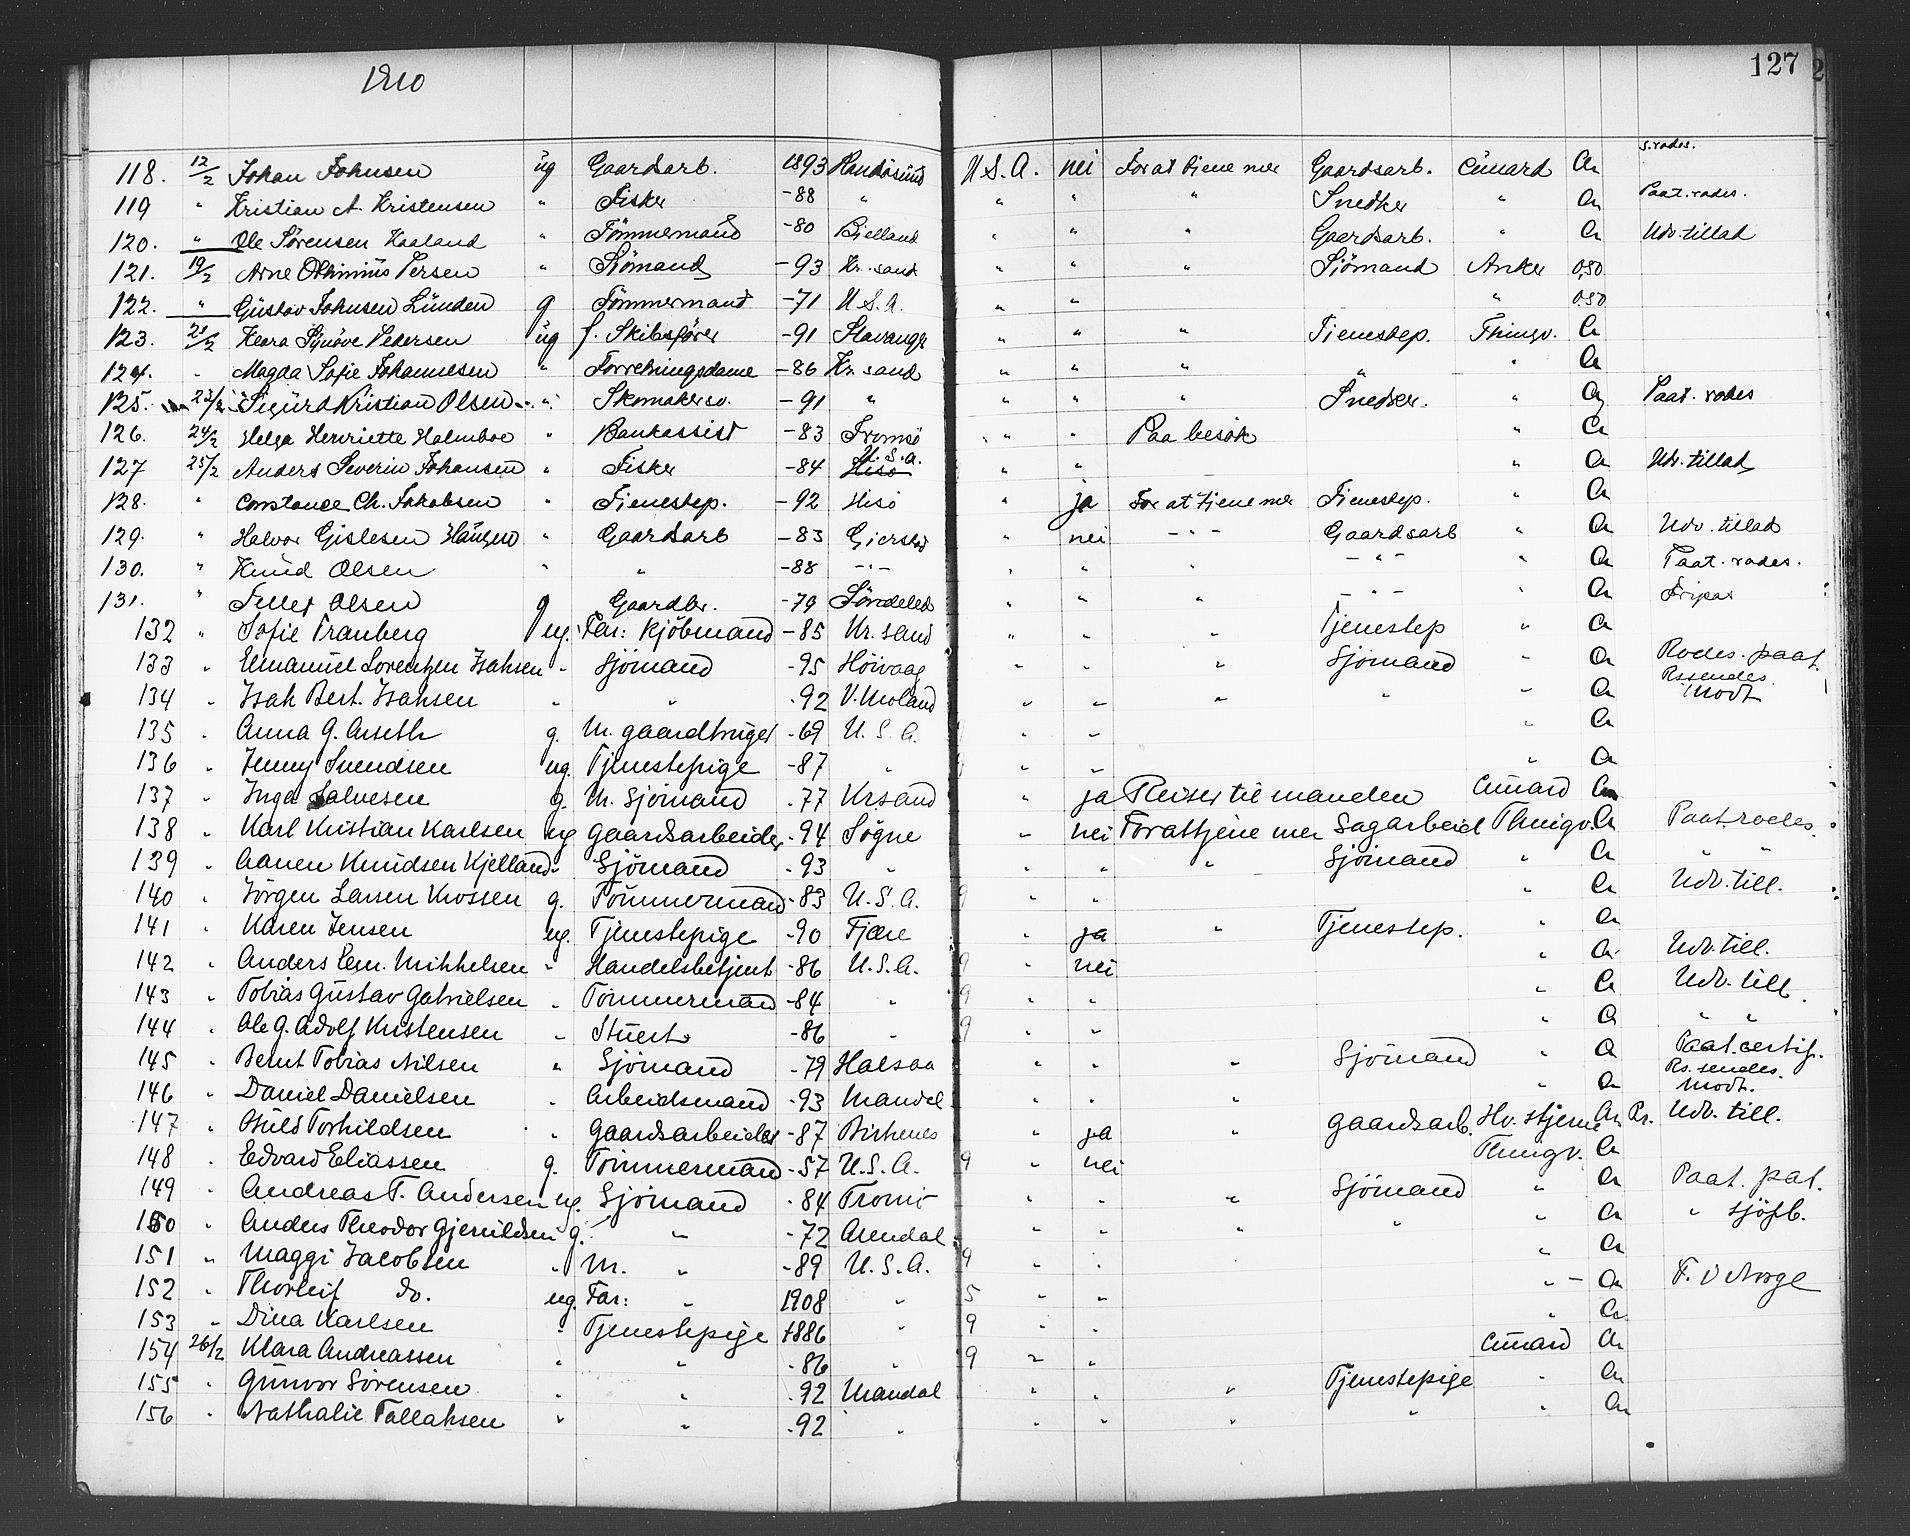 1910
127
118. 12/2 Johan Johnsen ug Gaardsarb. 1893 Randøsund U.S.A. nei For at tjene mer Gaardsarb. Cunard Cr s.vades.
119 " Kristian A. Kristensen " Fisker -88 " " " " Snedker " Cr Paat. vades.
120. " Ole Sørensen Haaland " Tømmermand -80 Bjelland " " " Gaardsarb. " Cr Udv. tillad
121. 19/2 Arne Othinius Tersen " Sjømand -93 Kr. sand " " " Sjømand Anker 0,50
122. " Gustav Johnsen Lunden g Tømmermand -71 U.S.A. " " " 0.50
123. 21/2 Klara Synøve Pedersen ug f. Skibsfører -91 Stavanger " " " Tjenestep. Thingv. Cr
124. " Magda Sofie Johannesen " Forretningsdame -86 Kr. sand " " " " " Cr
125. 23/2 Sigurd Kristian Olsen " Skomakersv. -91 " " " " Snedker. " Cr Paat. vades
126. 24/2 Helga Henriette Holmboe " Bankassist -83 Tromsø " " Paa besøk " Cr
127 25/2 Anders Severin Johansen " Fisker -84 Hisø U.S.A. " " " Cr Udv. tillad
128. " Constance Ch. Jakobsen " Tjenestep. -92 Hisø " ja For at tjene mer Tjenestep. " Cr
129. " Halvor Gislesen Haugen " Gaardsarb -83 Gjerstad " nei -"- Gaardsarb " Cr Udv. tillad
130. " Knud Olsen " " -88 -"- " " " -"- " Cr Paat. vades.
131. " Tellef Olsen g Gaardbr. -79 Søndeled " " " -"- " Cr Fripas
132 " Sofie Tranberg ug. Far: Kjøbmand -85 Kr. sand " " " Tjenestep " Cr
133 " Emanuel Lorentzen Isaksen " Sjømand -95 Høivaag " " " Sjømand " Cr Vades. paat.
134 " Isak Bert. Isaksen " " -92 V. Moland " " " " " Cr Ps sendes. Modt
135 " Anna G. Arseth g. M. gaardbruger -69 U.S.A. " " " Cr
136 " Jenny Svendsen ug. Tjenestepige -87 " 9 " " " Cr
137 " Inga Salvesen g. M. Sjømand -77 Krsand " ja Reiser til manden Cunard Cr
138 " Karl Kristian Karlsen ug gaardsarbeider -94 Søgne " nei For at tjene mer Sagarbeid Thingv. Cr Paat. vades.
139 " Aanen Knudsen Kjelland " Sjømand -93 " " " " Sjømand " Cr " "
140 " Jørgen Larsen Krossen g. Tømmermand -83 U.S.A. 9 " " " Cr Udv. till.
141 " Karen Jensen ug. Tjenestepige -90 Fjære " ja " Tjenestep. " Cr
142 " Anders Em. Mikkelsen " Handelsbetjent -86 U.S.A. 9 " nei " Cr Udv. till.
143 " Tobias Gustav Gabrielsen " Tømmermand -84 " 9 " " " Cr Udv. till.
144 " Ole G. Adolf Kristensen " Stuert -86 " 9 " " " Cr " "
145 " Bernt Tobias Nilsen " Sjømand -79 Halsaa " " " Sjømand " Cr Paat. certif.
146 " Daniel Danielsen " Arbeidsmand -93 Mandal " " " " Cr Ps. sendes. Modt.
147 " Torkildsen " gaardsarbeider -87 Birkenes " ja " gaardsarb. Hv. stjerne Cr Pr. Udv. till.
148 " Edvard Eliassen g. Tømmermand -57 U.S.A. 9 " nei Thingv. Cr
149 " Andreas T. Andersen ug. Sjømand -84 Tromø " " " Sjømand " Cr Paat. pat.
150 " Anders Theodor Gjeruldsen g. " -72 Arendal " " " " " Cr " sjøfb.
151 " Maggi Jacobsen " M. " -89 U.S.A. 9 " " " Cr
152 " Thorleif do. ug. Far: " 1908 " 5 " " " - Cr F. i Norge
153 " Dina Karlsen " Tjenestepige 1886 " 9 " " " Cr
154 26/2 Klara Andreassen " " -86 " 9 " " Cunard Cr
155 " Gunvor Sørensen " " -92 Mandal " " " Tjenestepige " Cr
156 " Nathalie Tallaksen " " -92 " " " " " " Cr